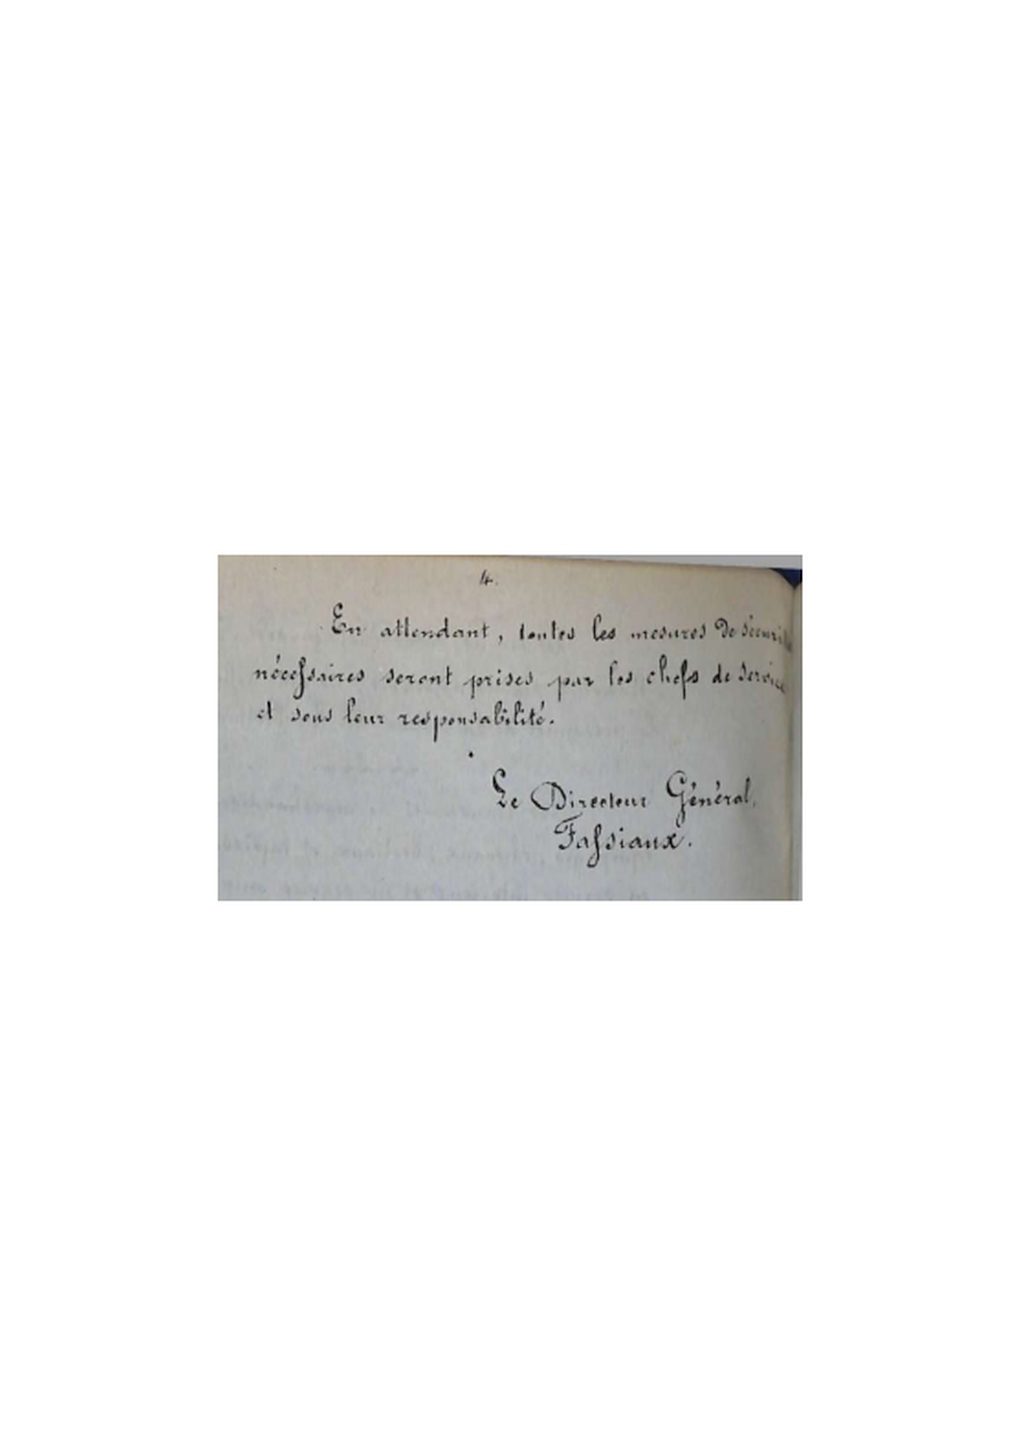 4.
En attendant, toutes les mesures de sécurité
nécessaires seront prises par les chefs de service
et sous leur responsabilité.
Le Directeur Général,
Fassiaux.